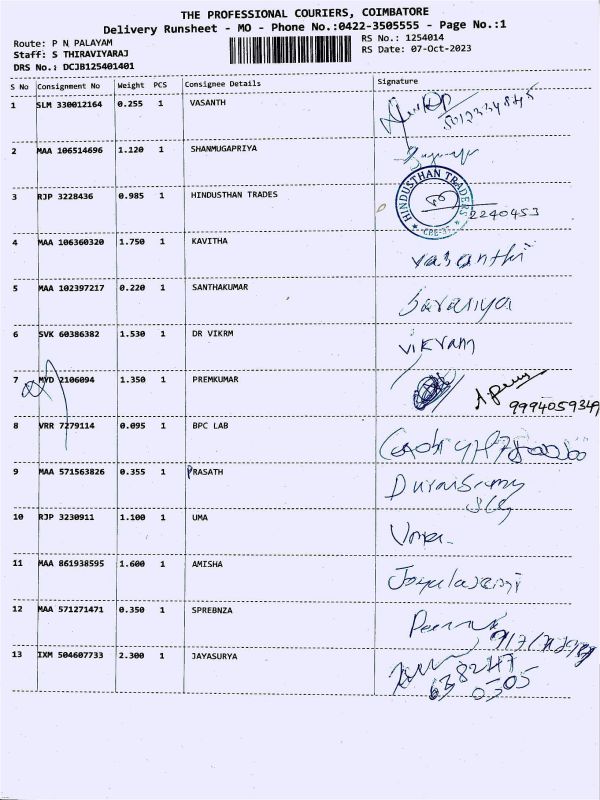 THE PROFESSIONAL COURIERS, COIMBATORE
Delivery Runsheet - MO - Phone No.:0422-3505555 - Page No.:1
Route: P N PALAYAM RS No.: 1254014
Staff: S THIRAVIYARAJ RS Date: 07-Oct-2023
DRS No.: DCJB125401401
S No Consignment No Weight PCS Consignee Details Signature
1 SLM 330012164 0.255 1 VASANTH
2 MAA 106514696 1.120 1 SHANMUGAPRIYA
3 RJP 3228436 0.985 1 HINDUSTHAN TRADES HINDUSTHAN TRADERS 2240453
4 MAA 106360320 1.750 1 KAVITHA vasanthi
5 MAA 102397217 0.220 1 SANTHAKUMAR
6 SVK 60386382 1.530 1 DR VIKRM vikram
7 MYD 2106094 1.350 1 PREMKUMAR 9994059349
8 VRR 7279114 0.095 1 BPC LAB
9 MAA 571563826 0.355 1 PRASATH
10 RJP 3230911 1.100 1 UMA Uma
11 MAA 861938595 1.600 1 AMISHA
12 MAA 571271471 0.350 1 SPREBNZA
13 IXM 504607733 2.300 1 JAYASURYA